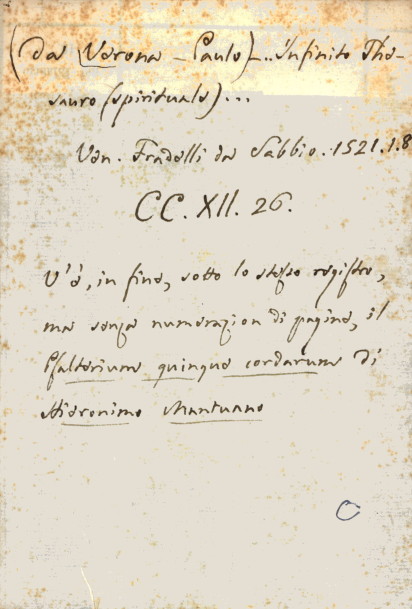 (da Verona - Paulo) - .. infinito The-
sauro (spirituale) ...
Ven. Fradelli da Sabbio. 1521. 1. 8
CC. XII. 26.
V'è, in fine, sotto lo stesso registro,
ma senza numerazion di pagine, il
Psalterium quinque cordarum di
Hieronimo Mantuano